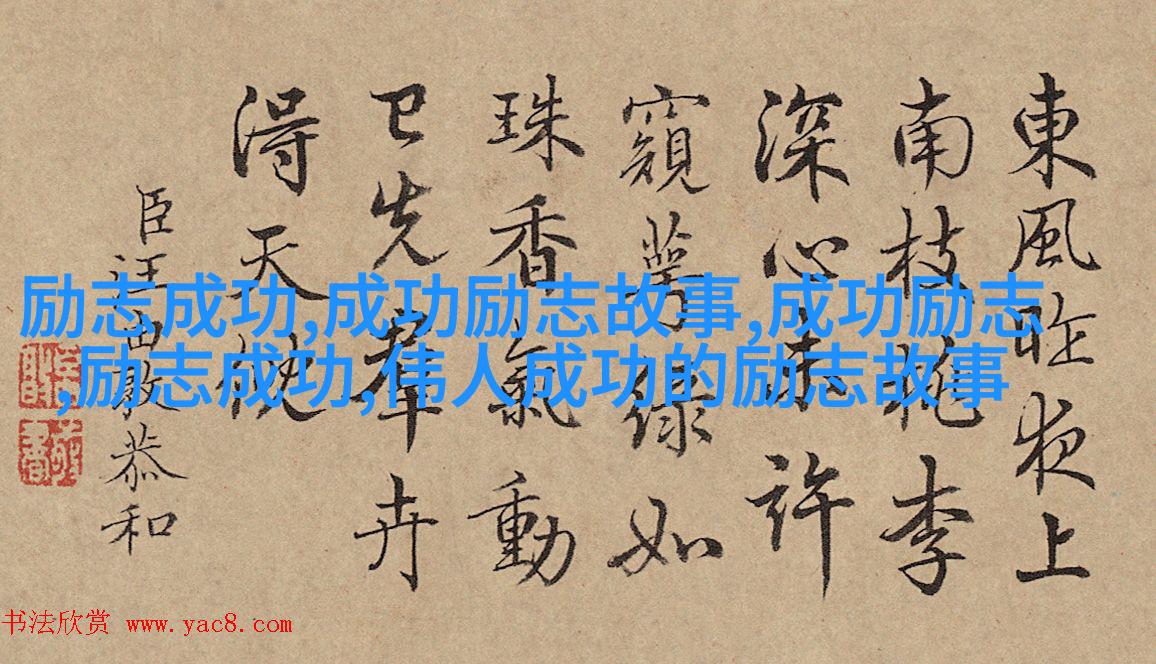 東風昨夜上
南枝桃李
深心未許
窺萼綠如
珠香氣動
已先羣卉
得天
臣汪由敦恭和
励志成功,成功励志故事,成功励志
,励志成功,伟人成功的励志故事
书法欣赏 www.yac8.com